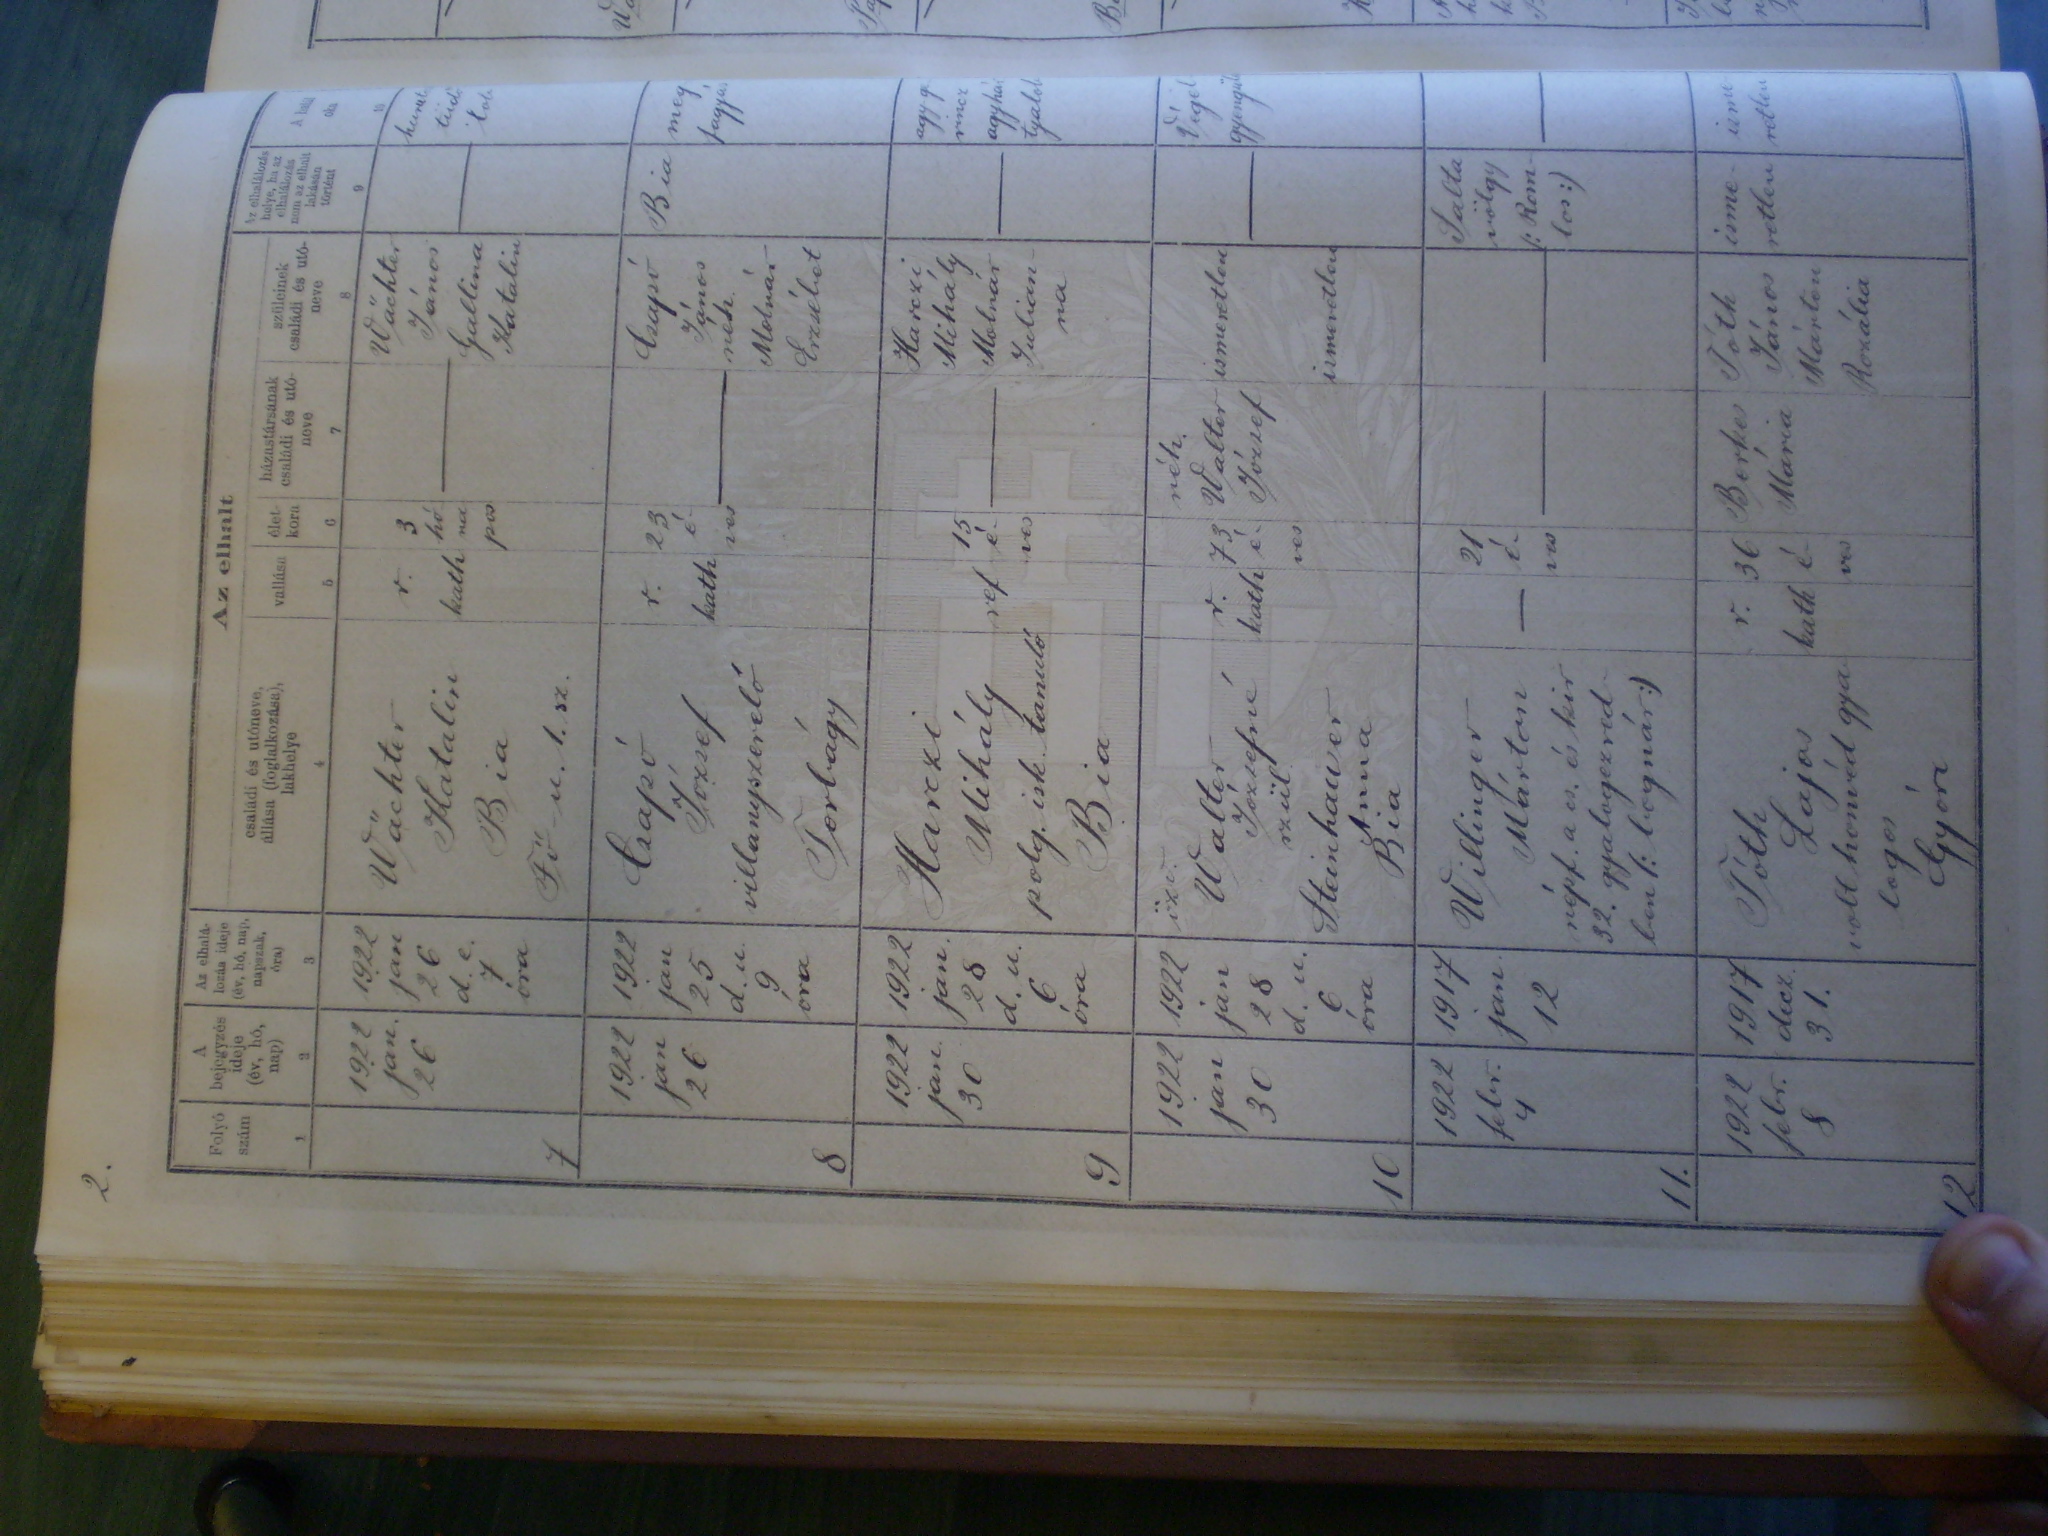 2.
Az elhalt
Folyó
szám
A
bejegyzés
ideje
(év, hó,
nap)
Az elhalá-
lozás ideje
(év, hó, nap,
napszak,
óra)
családi és utóneve,
állása (foglalkozása),
lakhelye
vallása
élet-
kora
házastársának
családi és utó-
neve
szüleinek
családi és utó-
neve
Az elhalálozás
helye, ha az
elhalálozás
nem az elhalt
lakásán
történt
A halál
oka
1
2
3
4
5
6
7
8
9
10
7
1922
jan.
26
1922
jan
26
d. e.
7
óra
Wächter
Katalin
Bia
Fő-u. 1. sz.
r.
kath
3
hó
na
pos
Wächter
János
Gallina
Katalin
8
1922
jan
26
1922
jan
25
d. u.
9
óra
Csapó
József
villanyszerelő
Torbágy
r.
kath
23
é-
ves
Csapó
János
néh.
Molnár
Erzsébet
Bia
meg
fagyás
9
1922
jan.
30
1922
jan.
28
d. u.
6
óra
Harczi
Mihály
polg. isk. tanuló
Bia
ref
15
é-
ves
Harczi
Mihály
Molnár
Julian-
na
10
1922
jan
30
1922
jan
28
d. u.
6
óra
özv.
Walter
Józsefné
szül.
Steinhauser
Anna
Bia
r.
kath
73
é-
ves
néh.
Walter
József
ismeretlen
ismeretlen
Végel
gyengül
11.
1922
febr.
4
1917
jan.
12
Willinger
Márton
népf. a cs. és kir
32. gyalogezred-
ben (: bognár :)
21
é-
ves
Salta
völgy
(: Rom-
los :)
12
1922
febr.
8
1917
decz.
31.
Tóth
Lajos
volt honvéd gya
logos
Győri
r.
kath
36
é-
ves
Berkes
Mária
Tóth
János
Márton
Rozália
isme-
retlen
isme
retlen